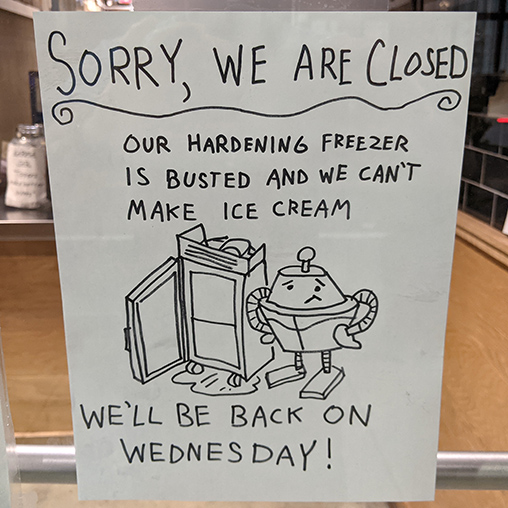 SORRY, WE ARE CLOSED
OUR HARDENING FREEZER
IS BUSTED AND WE CAN'T
MAKE ICE CREAM
WE'LL BE BACK ON
WEDNESDAY!